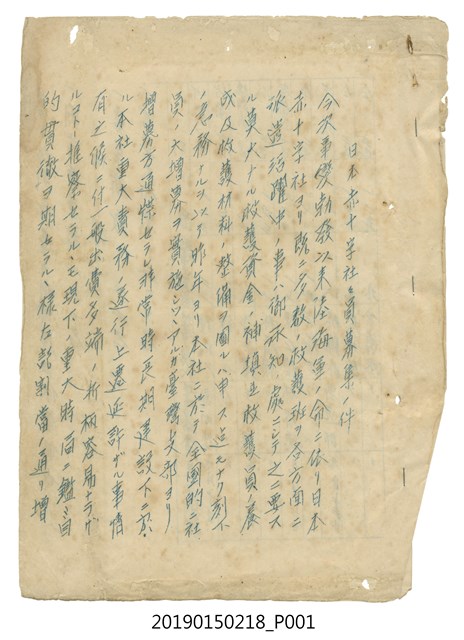 日本赤十字社々員募集ノ件
今次事変勃発以来陸海軍ノ命ニ依リ日本
赤十字社ヨリ既ニ多数ノ救護班ヲ各方面ニ
派遣活躍中ノ事ハ御承知ノ処ニシテ之ニ要ス
ル莫大ナル救護資金ノ補填並救護員ノ養
成及救護材料ノ整備ヲ図ルハ申ス迄モナク刻下
ノ急務ナルヲ以テ昨年ヨリ本社ニ於テ全国的ニ社
員ノ大増募ヲ実施シツヽアルカ台湾支部ヨリ
増募方通牒セラレ非常時長期建設下ニ於ケ
ル本社重大責務ノ遂行上遷延許サザル事情
有之候ニ付一般出費多端ノ折柄容易ナラザ
ルコトヽ推察セラルヽモ現下ノ重大時局ニ鑑ミ目
的貫徹ヲ期セラルヽ様左記割当ノ通リ増
20190150218_P001